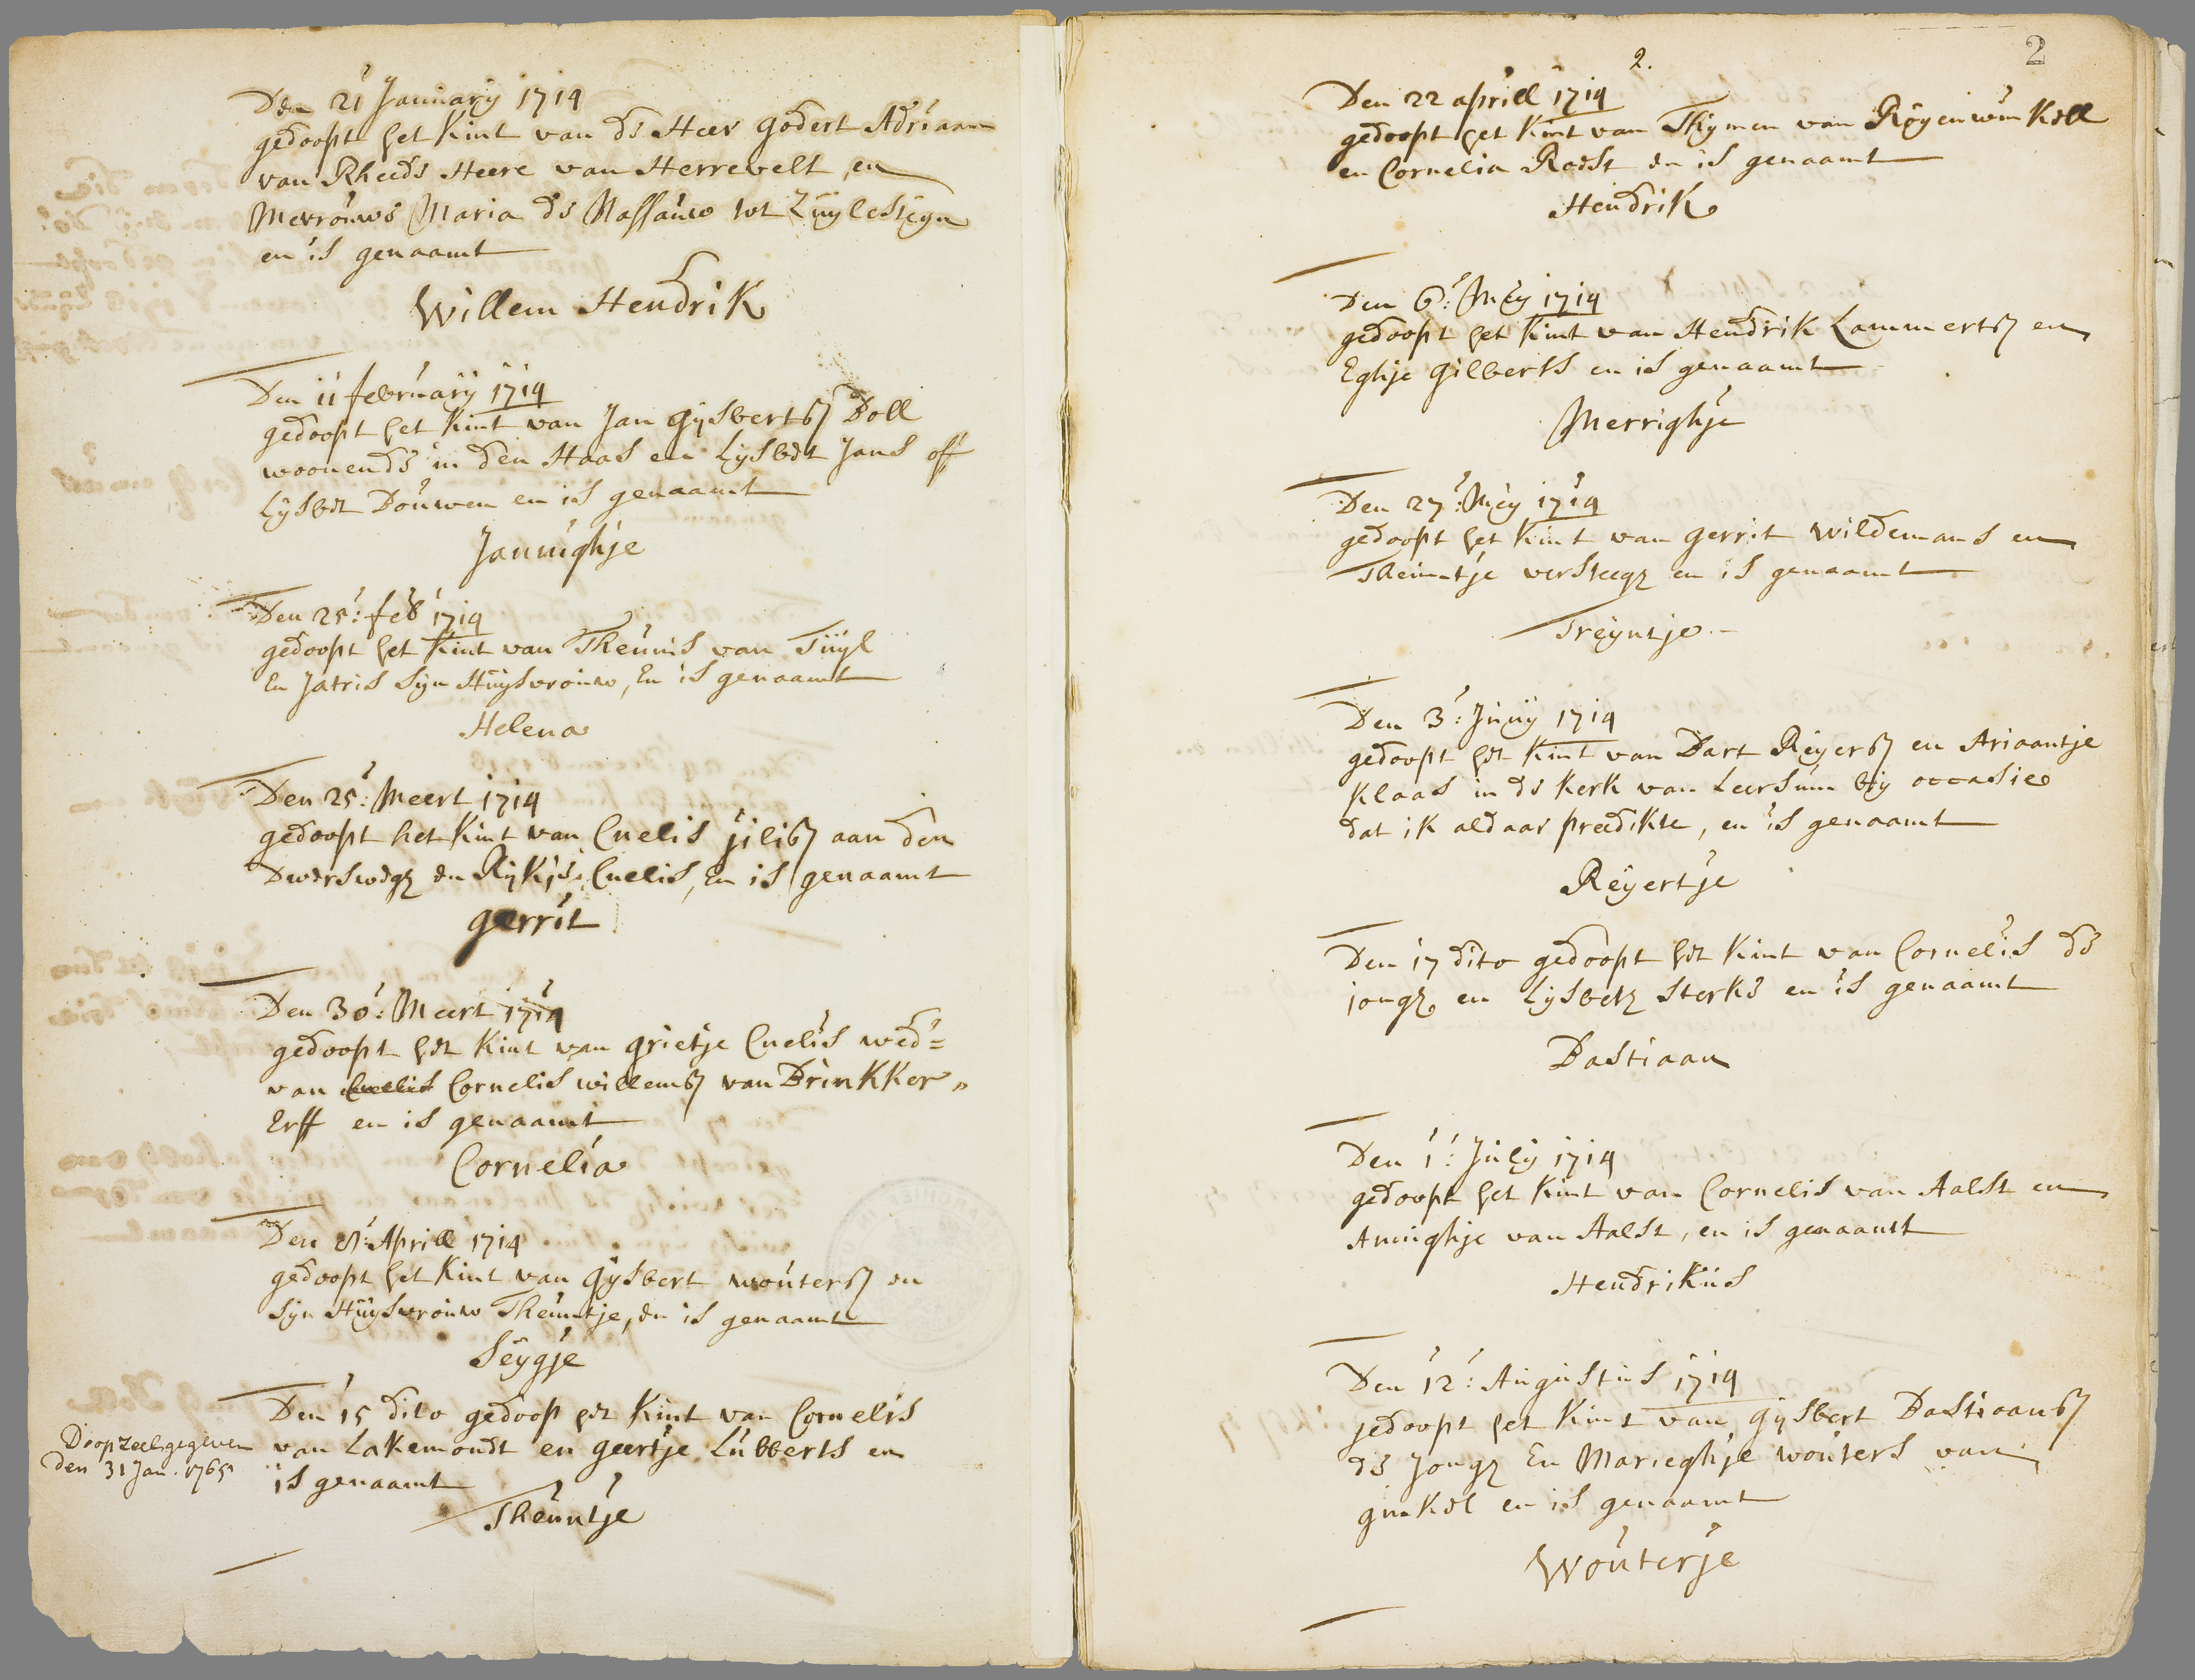 Den 21 January 1714
gedoopt het Kint van de Heer godert Adriaan
van Rheede Heere van Herrevelt en
Mevrouwe Maria de Nassauw tot Zuylesteyn
en is genaamt
Willem Hendrik
Den 11 february 1714
gedoopt het Kint van Jan gysbertsz Boll
woonende in den Haas en Lysbet Jans off
Lysbet Bouwen en is genaamt
Jannighje
Den 25: feb 1714
gedoopt het Kint van Theunis van Tuyl
En Jatris Syn Huysvrouw, En is genaamt
Helena
Den 25: Meert 1714
gedoopt het Kint van Cnelis jilisz aan den
Dwersweg en Rykje Cnelis, En is genaamt
gerrit
Den 30: Meert 1714
gedoopt het Kint van grietje Cnelis wed=
van Cnelis Cornelis willemsz van Brinkker„
Erff en is genaamt
Cornelia
Den 8: Aprill 1714
gedoopt het Kint van gysbert woutersz en
Syn Huysvrouw Theuntje, en is genaamt
Seygje
Den 15 dito gedoop het Kint van Cornelis
van Lakemondt en geertje Lubberts en
is genaamt
Theuntje
Doopzeel gegeven
den 31 Jan. 1765
2.
2
Den 22 aprill 1714
gedoopt het Kint van Thymen van Royenwinkell
en Cornelia Roest en is genaamt
Hendrik
Den 6: Mey 1714
gedoopt het Kint van Hendrik Lammertsz en
Eghje gilberts en is genaamt
Merrighje
Den 27: Mey 1714
gedoopt het Kint van gerrit wildemans en
Theuntje versteeg en is genaamt
Treyntje
Den 3: Juny 1714
gedoopt het Kint van Bart Reyersz en Ariaantje
Klaas in de Kerk van Leersum by occasie
dat ik aldaar preedikte, en is genaamt
Reyertje
Den 17 dito gedoopt het Kint van Cornelis de
jong en Lysbet Sterks en is genaamt
Bastiaan
Den 1: July 1714
gedoopt het Kint van Cornelis van Aalst en
Annighje van Aalst, en is genaamt
Hendrikus
Den 12: Augustus 1714
gedoopt het Kint van gysbert Bastiaansz
de Jong En Marieghje wouters van
ginkel en is genaamt
Wouterje